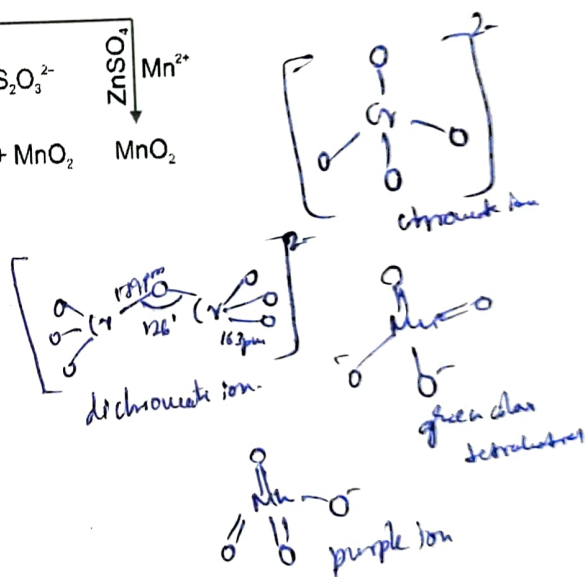 S₂O₃²⁻
ZnSO₄
Mn²⁺
+ MnO₂
MnO₂
2-
O
Cr
O
O
O
chromate ion
2-
O
O
O
Cr
179pm
O
126°
Cr
O
O
O
163pm
dichromate ion.
O
Mn
O
⁻O
O⁻
green color
tetrahedral
O
Mn
O⁻
O
O
purple ion